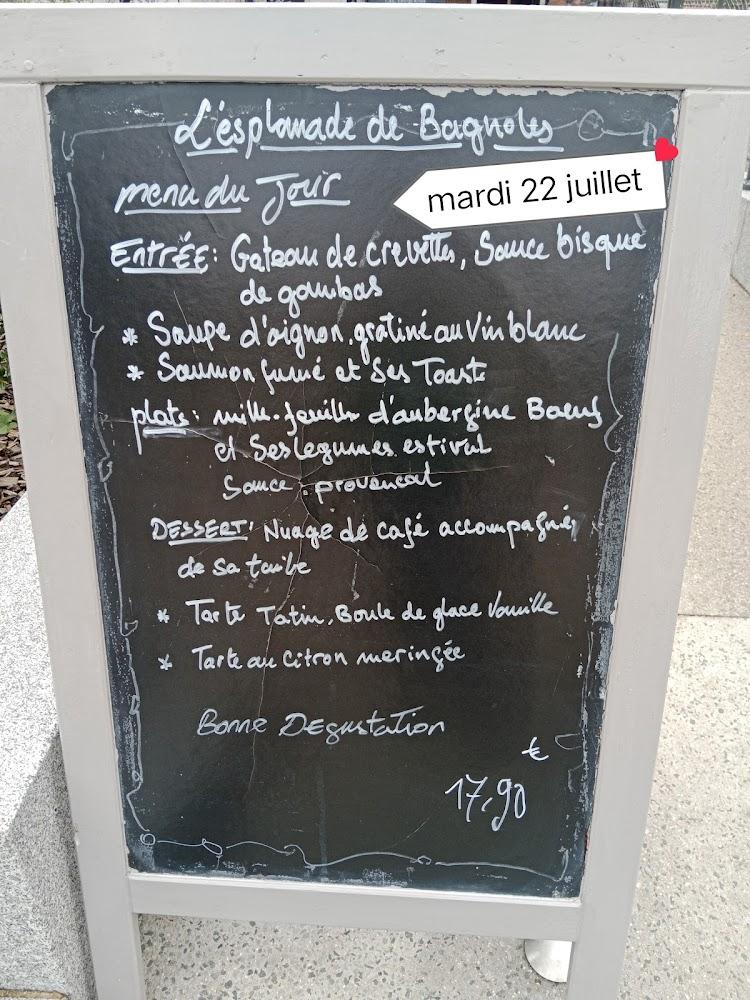 L'ésplanade de Bagnoles
menu du Jour
mardi 22 juillet
ENTRÉE: Gateau de crevettes, Sauce bisque
de gambas
* Soupe d'oignon, gratiné au Vin blanc
* Saumon fumé et Ses Toasts
plats: mille-feuille d'aubergine Boeuf
et Ses legumes estival
Sauce: provencal
DESSERT: Nuage de café accompagnié
de sa tuile
* Tarte Tatin, Boule de glace Vanille
* Tarte au Citron meringée
Bonne Degustation
€
17,90